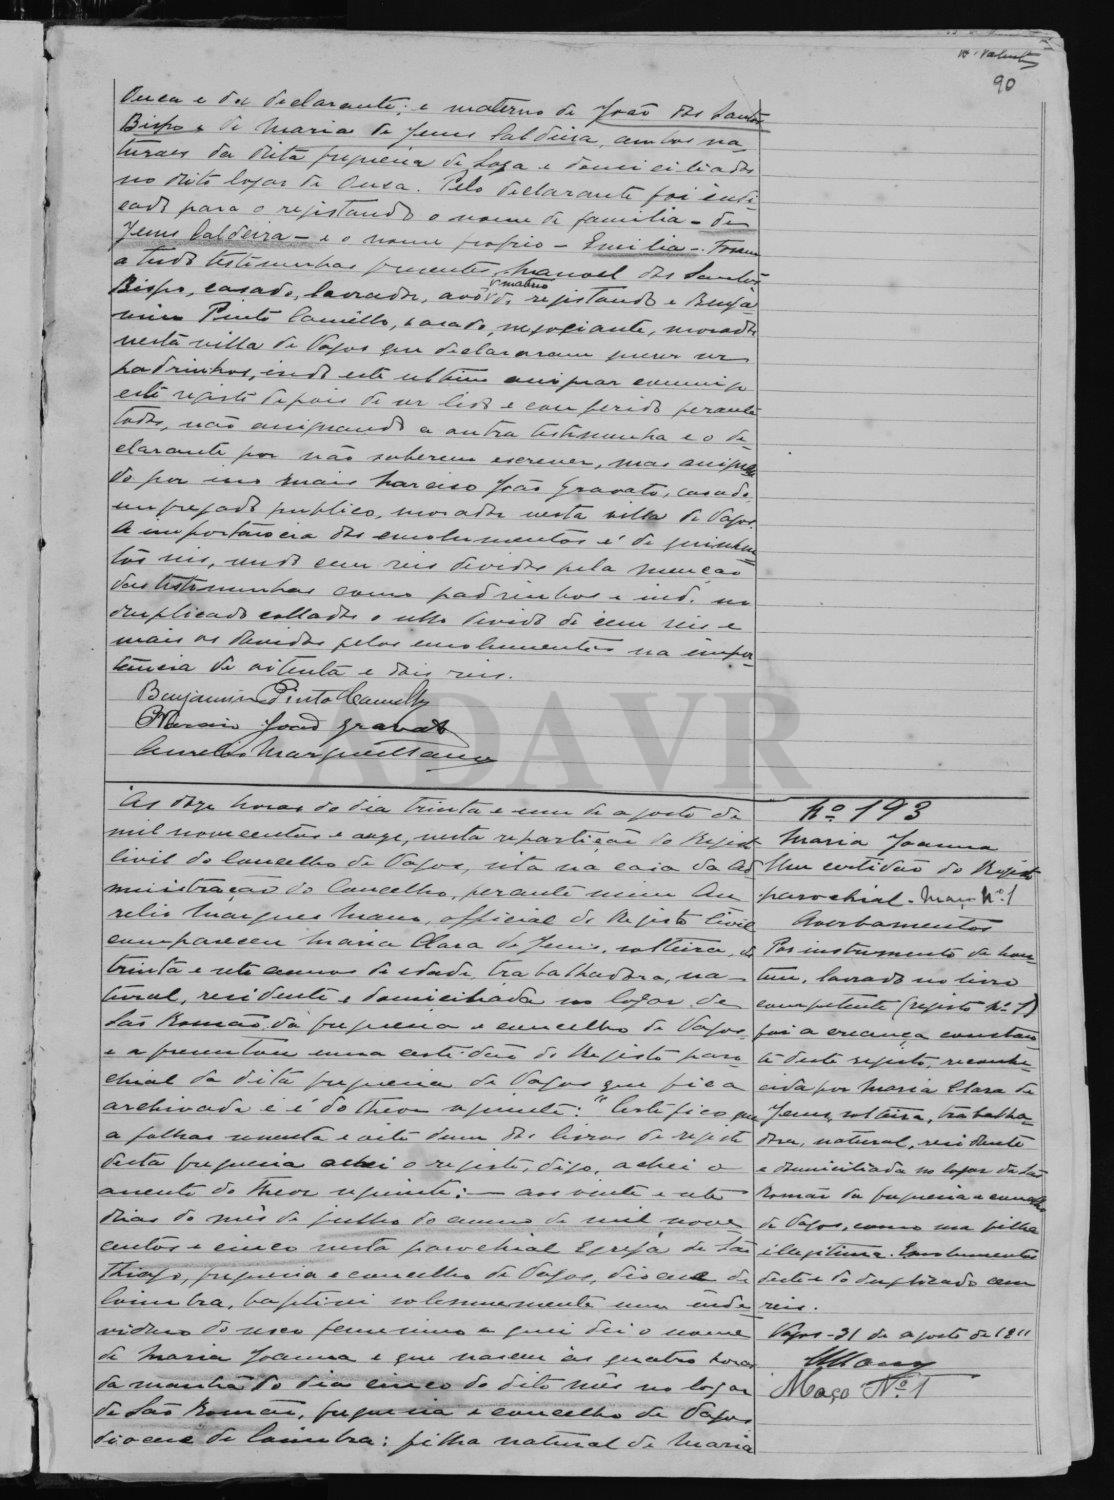 90
Ouca e da declarante; e materno de João dos Santos
Bispo e de Maria de Jesus Caldeira, ambos na-
turaes da dita freguesia de Soza e domiciliados
no dito logar de Ouca. Pelo declarante foi indi-
cado para o registando o nome de familia - de
Jesus Caldeira - e o nome proprio - Emilia -. Foram
a tudo testemunhas presentes, Manoel dos Santos
Bispo, casado, lavrador, avô materno do registando e Benja-
mim Pinto Camêllo, casado, negociante, morador
nesta villa de Vagos que declararam querer ser
padrinhos, indo este ultimo assignar commigo
este registo depois de ser lido e conferido perante
todos, não assignando a outra testemunha e o de-
clarante por não saberem escrever, mas assignan-
do por isso mais Narciso João Gravato, casado,
empregado publico, morador nesta villa de Vagos.
A importancia dos emolumentos é de quinhen-
tos reis, sendo cem reis devidos pela menção
das testemunhas como padrinhos e indo no
duplicado collado o sello devido de cem reis e
mais os devidos pelos emolumentos na impor-
tancia de oitenta e dois reis.
Benjamim Pinto Camello
Narciso João Gravato
Aurelio Marques Mano
As doze horas do dia trinta e um de agosto de
mil novecentos e onze, nesta repartição do Registo
civil do Concelho de Vagos, sita na casa da Ad
ministração do Concelho, perante mim Au
relio Marques Mano, official do Registo Civil
compareceu Maria Clara de Jesus, solteira, de
trinta e sete annos de edade, trabalhadora, na-
tural, residente e domiciliada no logar de
São Romão, da freguesia e concelho de Vagos
e apresentou uma certidão do Registo paro
chial da dita freguesia de Vagos que fica
archivada e é do theor seguinte: "Certifico que
a folhas noventa e oito dum dos livros do registo
desta freguesia achei o registo, digo, achei o
assento do theor seguinte: — aos vinte e sete
dias do mês de julho do anno de mil nove
centos e cinco nesta parochial Egreja de São
Thiago, freguesia e concelho de Vagos, diocese de
Coimbra, baptisei solemnemente um indi
viduo do sexo feminino a quem dei o nome
de Maria Joanna e que nasceu às quatro horas
da manhã do dia cinco do dito mês no logar
de São Romão, freguesia e concelho de Vagos
diocese de Coimbra: filha natural de Maria
Nº 193
Maria Joanna
Uma certidão do Registo
parochial. Maço Nº 1
Averbamentos
Por instrumento de hon-
tem, lavrado no livro
competente (registo Nº 1)
foi a criança constan-
te deste registo, reconhe-
cida por Maria Clara de
Jesus, solteira, trabalha-
dora, natural, residente
e domiciliada no logar de São
Romão da freguesia e concelho
de Vagos, como sua filha
illegitima. Emolumentos
deste e do duplicado cem
reis.
Vagos - 31 de agosto de 1911
MMano
Maço Nº 1
ADAVR